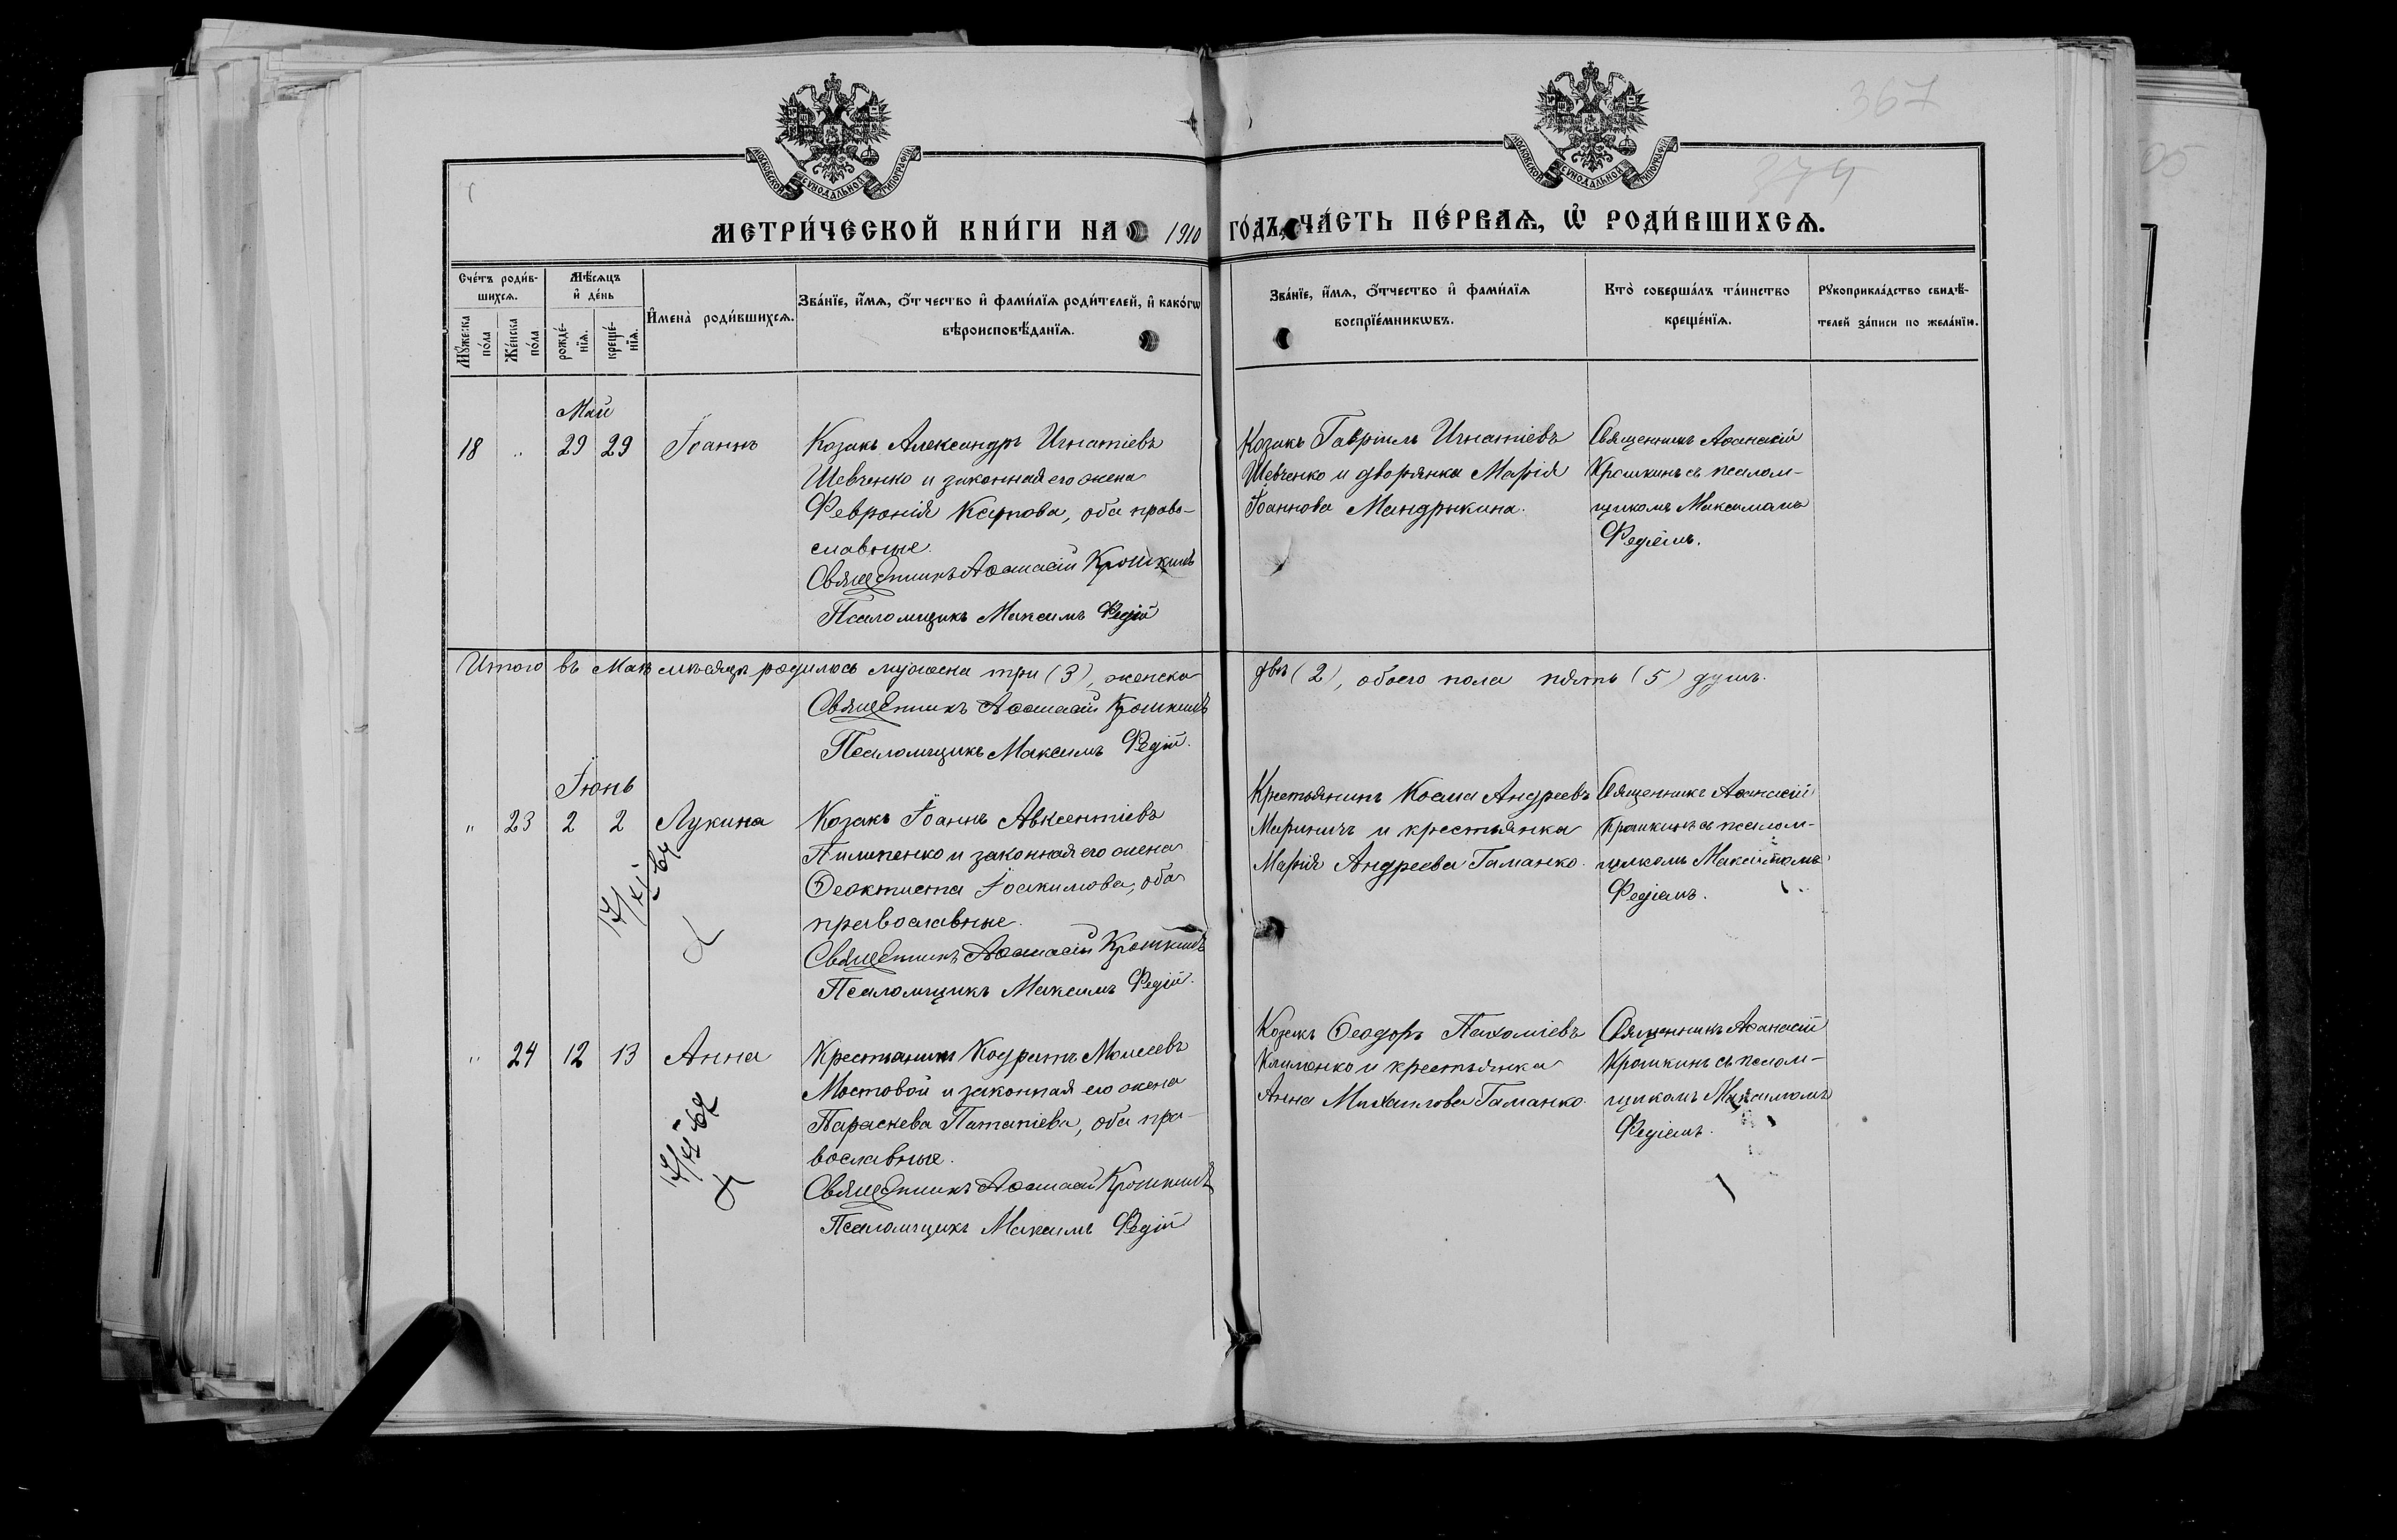 367
374
МОСКОВСКОЙ СѴНОДАЛЬНОЙ ТИПОГРАФІИ
МОСКОВСКОЙ СѴНОДАЛЬНОЙ ТИПОГРАФІИ
МЕТРИ́ЧЕСКОЙ КНИ́ГИ НА 1910 ГО́ДЪ, ЧА́СТЬ ПЕ́РВАѦ, Ѡ҆ РОДИ́ВШИХСѦ.
Сче́тъ роди́в-
шихсѧ.
Мꙋ́жеска
по́ла
Же́нска
по́ла
Мѣ́сѧцъ
и҆ де́нь
рожде́-
нїѧ.
креще́-
нїѧ.
И҆мена̀ роди́вшихсѧ.
Зва́нїе, и҆́мѧ, ѻ҆́тчество и҆ фами́лїѧ роди́телей, и҆ како́гѡ
вѣроисповѣ́данїѧ.
Зва́нїе, и҆́мѧ, ѻ҆́тчество и҆ фами́лїѧ
воспрїе́мникѡвъ.
Кто̀ соверша́лъ та́инство
креще́нїѧ.
Рꙋкоприкла́дство свидѣ́-
телей за́писи по жела́нїю.
Май
18 " 29 29 Іоаннъ
Козакъ Александръ Игнатіевъ
Шевченко и законная его жена
Февронія Карпова, оба право-
славные.
Священникъ Аѳанасій Крошкинъ
Псаломщикъ Максимъ Федій
Козакъ Гавріилъ Игнатіевъ
Шевченко и дворянка Марія
Іоаннова Мандрыкина.
Священникъ Аѳанасій
Крошкинъ съ псалом-
щикомъ Максимомъ
Федіемъ.
Итого въ Маѣ мѣсяцѣ родилось мужеска три (3), женска двѣ (2), обоего пола пять (5) душъ.
Священникъ Аѳанасій Крошкинъ
Псаломщикъ Максимъ Федій.
Іюнь
" 23 2 2 Лукина
Козакъ Іоаннъ Авксентіевъ
Пилипенко и законная его жена
Ѳеоктиста Іоакимова, оба
православные.
Священникъ Аѳанасій Крошкинъ
Псаломщикъ Максимъ Федій.
Крестьянинъ Косма Андреевъ
Мариничъ и крестьянка
Марія Андреева Гаманко.
Священникъ Аѳанасій
Крошкинъ съ псалом-
щикомъ Максимомъ
Федіемъ.
" 24 12 13 Анна
Крестьянинъ Кодратъ Моисеевъ
Мостовой и законная его жена
Параскева Патапіева, оба пра-
вославные.
Священникъ Аѳанасій Крошкинъ
Псаломщикъ Максимъ Федій
Козакъ Ѳеодоръ Пахоміевъ
Клименко и крестьянка
Анна Михаилова Гаманко.
Священникъ Аѳанасій
Крошкинъ съ псалом-
щикомъ Максимомъ
Федіемъ.